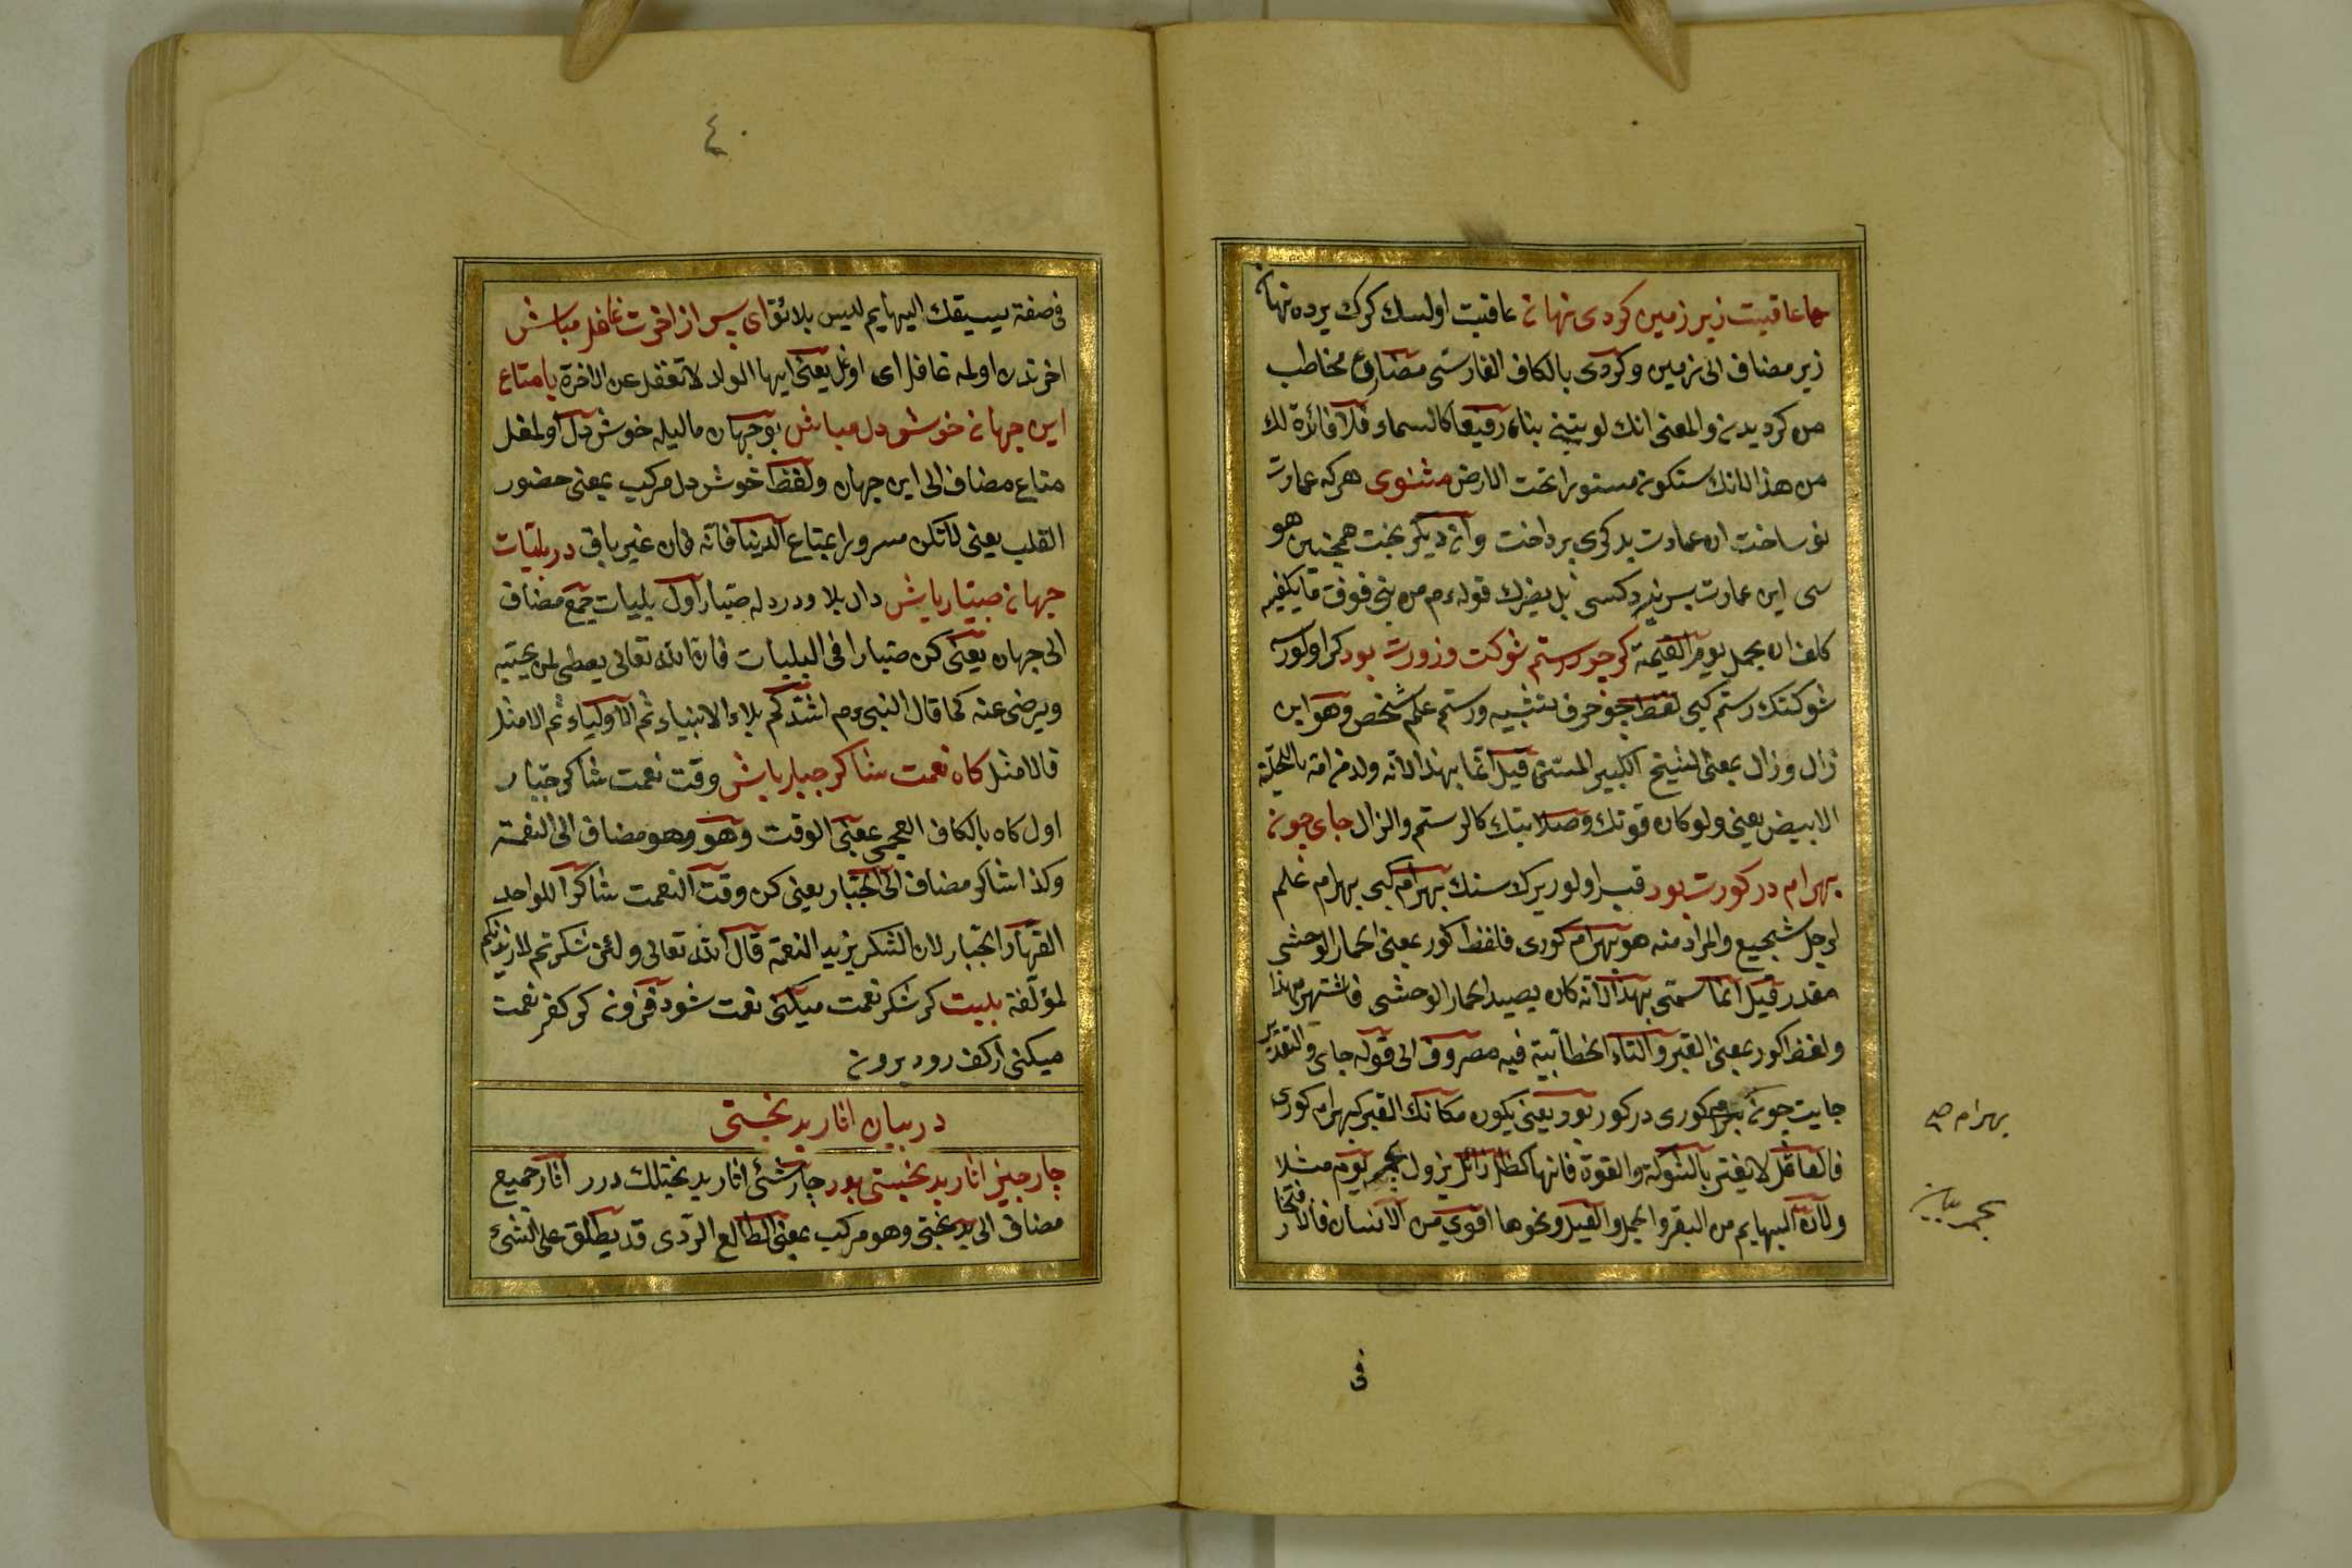 عاقبت زیر زمین کردی نهان عاقبت اولسك كرك يرده نهان
زیر مضاف الى زمین وکردی بالكاف الفارسی مضارع مخاطب
من کردیدن والمعنى انك لو بنیتی بناء رفیعا كالسماء فلا فائدة لك
من هذا لانك ستكون مستورا تحت الارض مثنوی هرکه عمارت
نو ساخت ان عمارت بدکری پرداخت وان دیکر بخت همچنین هو
سی این عمارت بسر نبرد کسی بل یضرك قوله ءم من بنی فوق ما یکفیه
کلف ان یحمل یوم القیمة کر چو رستم شوکت وزورت بود کر اولورسه
شوکتك رستم کبی لفظ چو حرف تشبیه ورستم علم شخص وهو ابن
زال وزال بمعنى الشیخ الکبیر المسن قیل انما بهذا لانه ولد من امه باللحیة
الابیض یعنی ولو كان قوتك وصلابتك كالرستم والزال جای چون
بهرام در کورت بود قبر اولور يرك سنك بهرام کبی بهرام علم
لرجل شجیع والمراد منه هو بهرام کوری فلفظ کور بمعنى الحمار الوحشی
مقدر قیل انما سمی بهذا لانه کان یصید الحمار الوحشی فاشتهر بهذا
ولفظ کور بمعنى القبر والتاء الخطابیة فیه مصروف الى قوله جای والتقدیر
جایت چون بهرام کوری در کور بود یعنی یکون مکانك القبر کبهرام کوری
فالعاقل لا یغتر بالشوكة والقوة فانها کظل زائل یزول یوم مثلا
ولان البهایم من البقر والجمل والفیل ونحوها اقوی من الانسان فالافتخار
بهرام صح
فی
٤٠
فی صفة یسبقك البهایم لیس بلائق ای پسر از اخرت غافل مباش
اخرتدن اولمه غافل ای اوغل یعنی ایها الولد لا تغفل عن الاخرة با متاع
این جهان خوش دل مباش بو جهان مالیله خوش دل اولمغل
متاع مضاف الى این جهان ولفظ خوش دل مرکب بمعنى حضور
القلب یعنی لا تکن مسرورا بمتاع الدنیا فانه فان غیر باق در بلیات
جهان صبار باش دان بلا ودرد له صبار اول بلیات جمع مضاف
الى جهان یعنی کن صبارا فی البلیات فان الله تعالى یعطی لمن یحبه
ویرضی عنه كما قال النبی ءم اشدکم بلاء الانبیاء ثم الاولیاء ثم الامثل
فالامثل کاه نعمت شاکر جبار باش وقت نعمت شاکر جبار
اول کاه بالکاف العجمی بمعنى الوقت وهو وهو مضاف الى النعمة
وکذا شاکر مضاف الى الجبار یعنی کن وقت النعمت شاکرا للواحد
القهار الجبار لان الشکر یزید النعمة قال الله تعالى ولئن شکرتم لازیدنکم
لمؤلفة بیت کر شکر نعمت میکنی نعمت شود افزون کر کفر نعمت
میکنی از کف رود برون
در بیان اثار بد بختی
چار چیز اثار بد بختی بود چار شئی اثار بد بختلك درر اثار جمیع
مضاف الى بد بختی وهو مرکب بمعنى الطالع الردی قد یطلق على الشیء